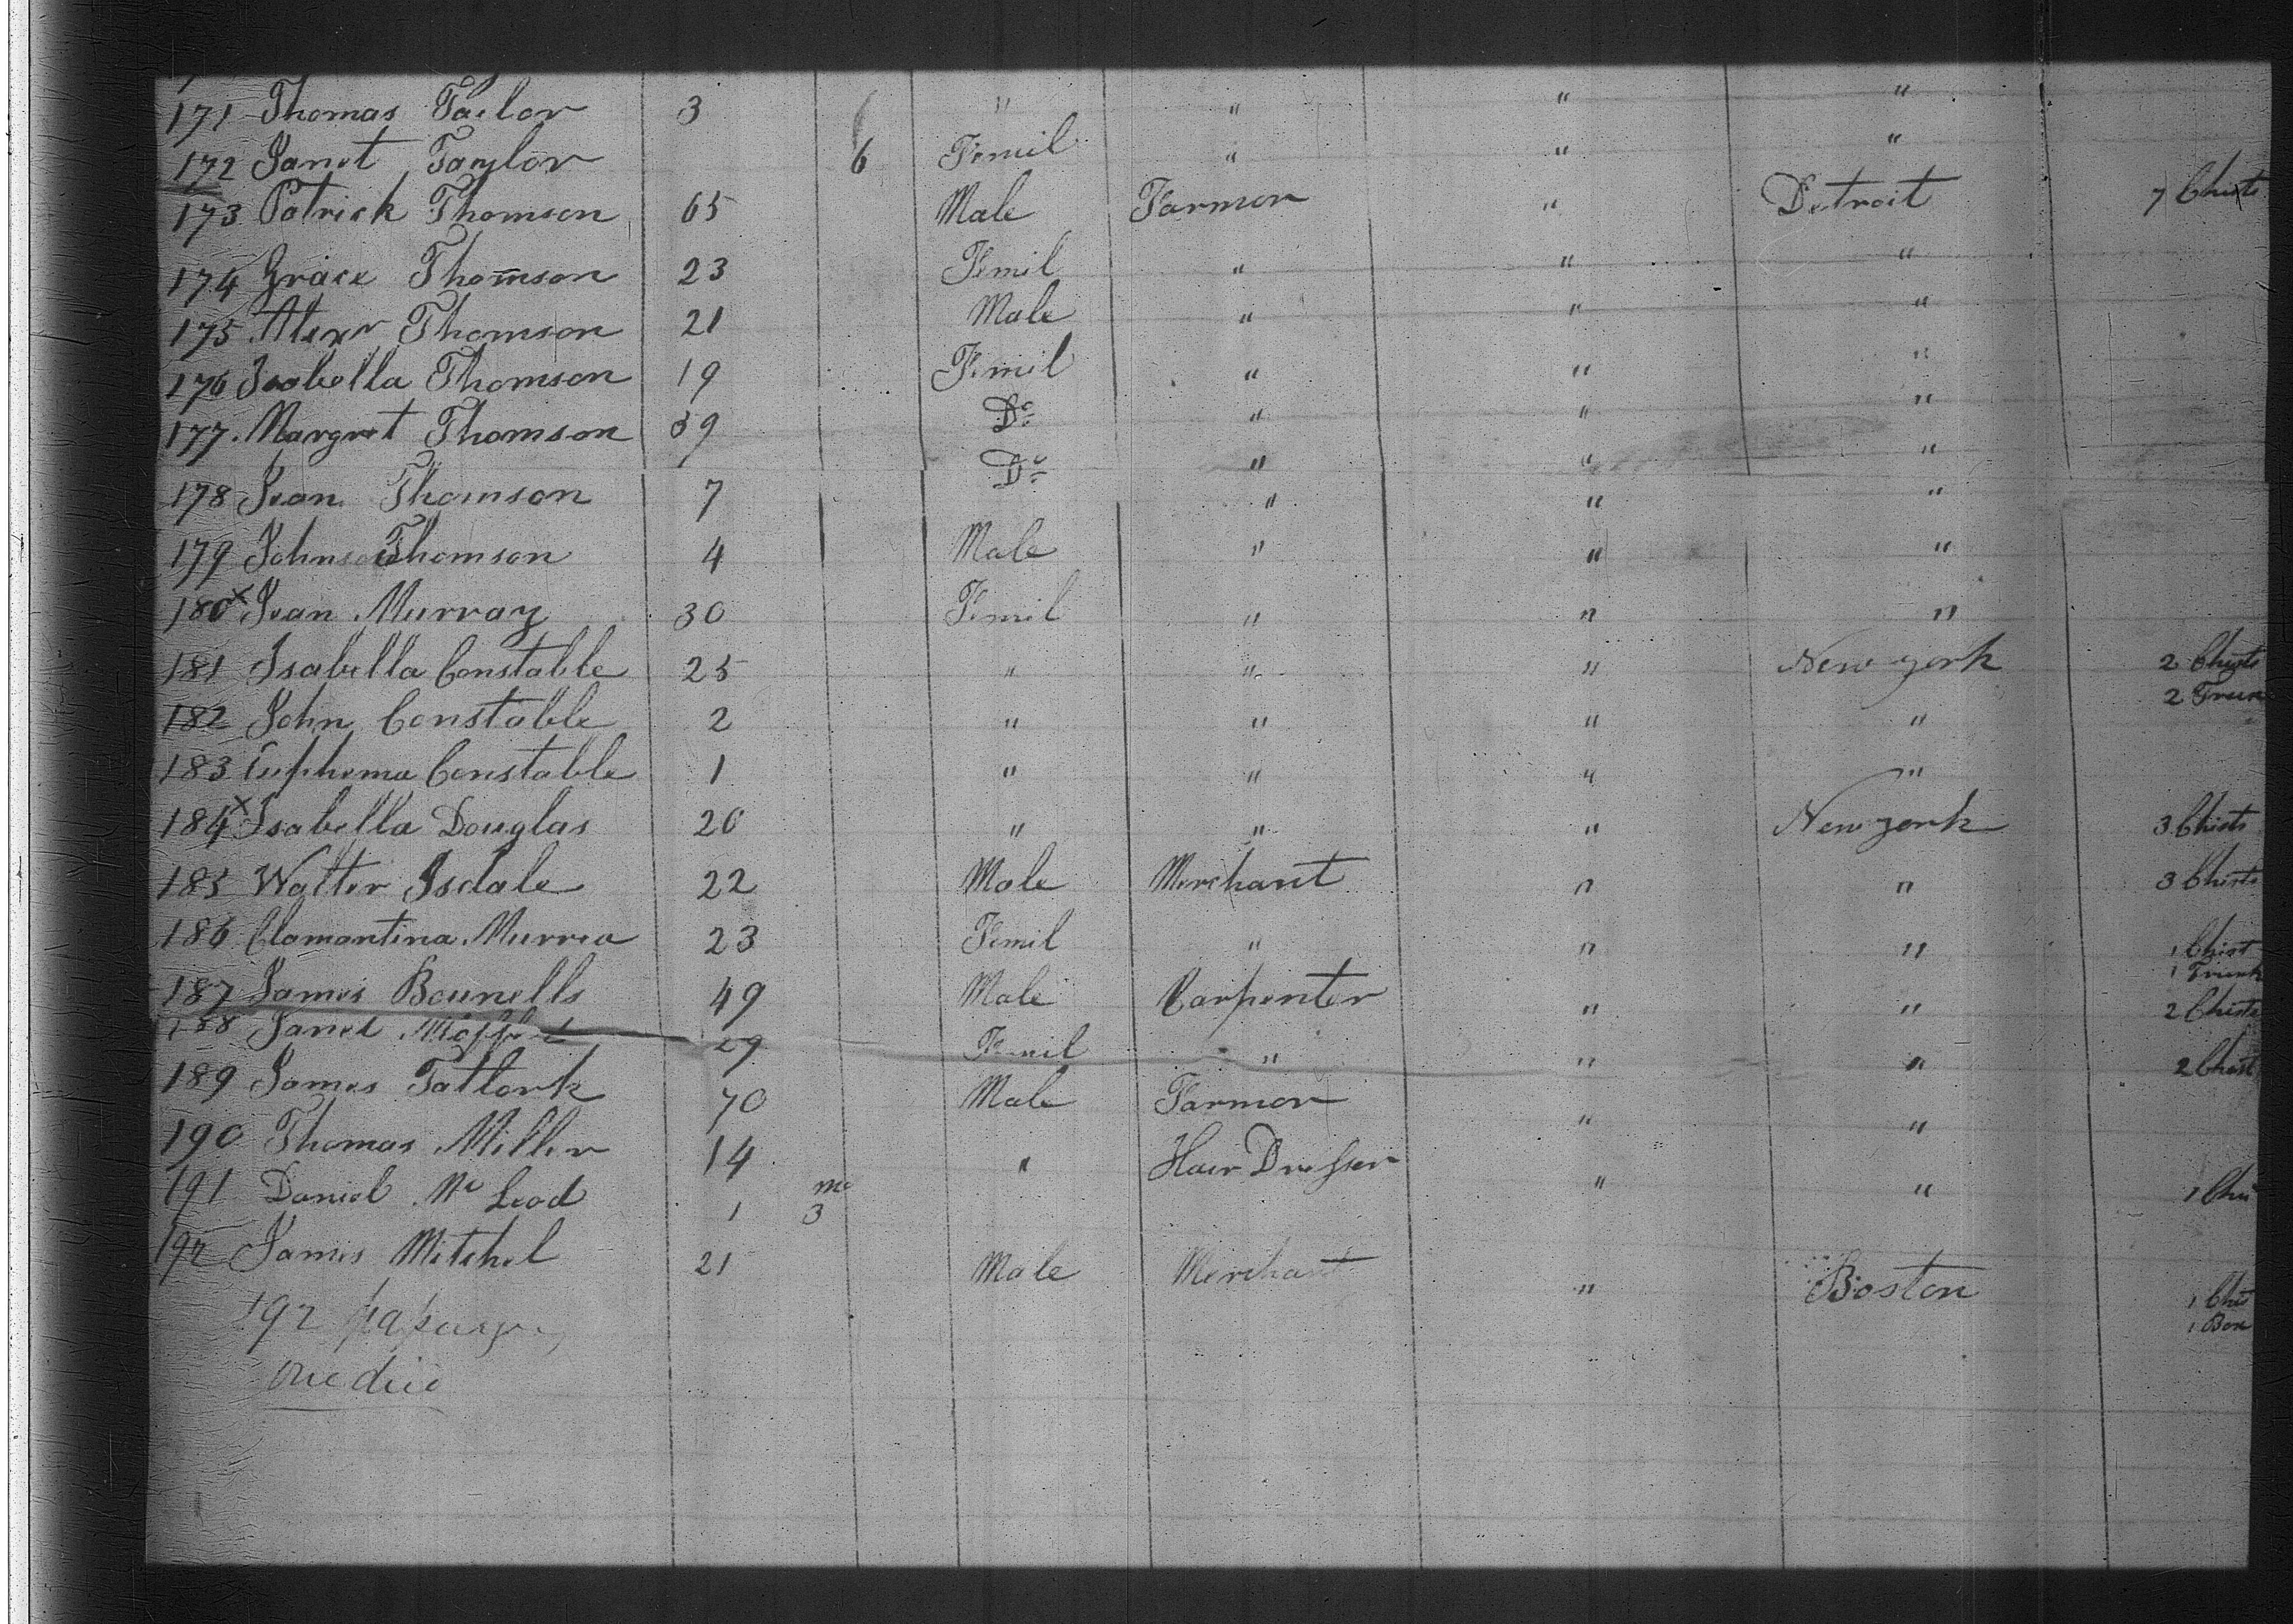 171 Thomas Tailor 3 " " " "
172 Janet Taylor 6 Femil " " "
173 Patrick Thomson 65 Male Farmer " Detroit 7 Chists
174 Grace Thomson 23 Femil " " "
175 Alexr Thomson 21 Male " " "
176 Isabella Thomson 19 Femil " " "
177. Margret Thomson 59 Do " " "
178 Jean Thomson 7 Do " " "
179 John Thomson 4 Male " " "
180 x Jean Murray 30 Femil " " "
181 Isabella Constable 25 " " " New york 2 Chists
2 Trun
182 John Constable 2 " " " "
183 Euphema Constable 1 " " " "
184 x Isabella Douglas 20 " " " New york 3 Chists
185 Walter Isdale 22 Male Merchant " " 3 Chists
186 Clamantina Murrea 23 Femil " " " 1 Chist
1 Trunk
187 James Bounells 49 Male Carpenter " " 2 Chists
188 Janet 29 Femil " " " 2 Chist
189 James Tatlork 70 Male Farmer " "
190 Thomas Miller 14 " Hair Dresser " " 1 Chi
191 Daniel Mc Leod 1 mo 3
192 James Mitchel 21 Male Merchant " Boston 1 Chis
1 Box
192
one died